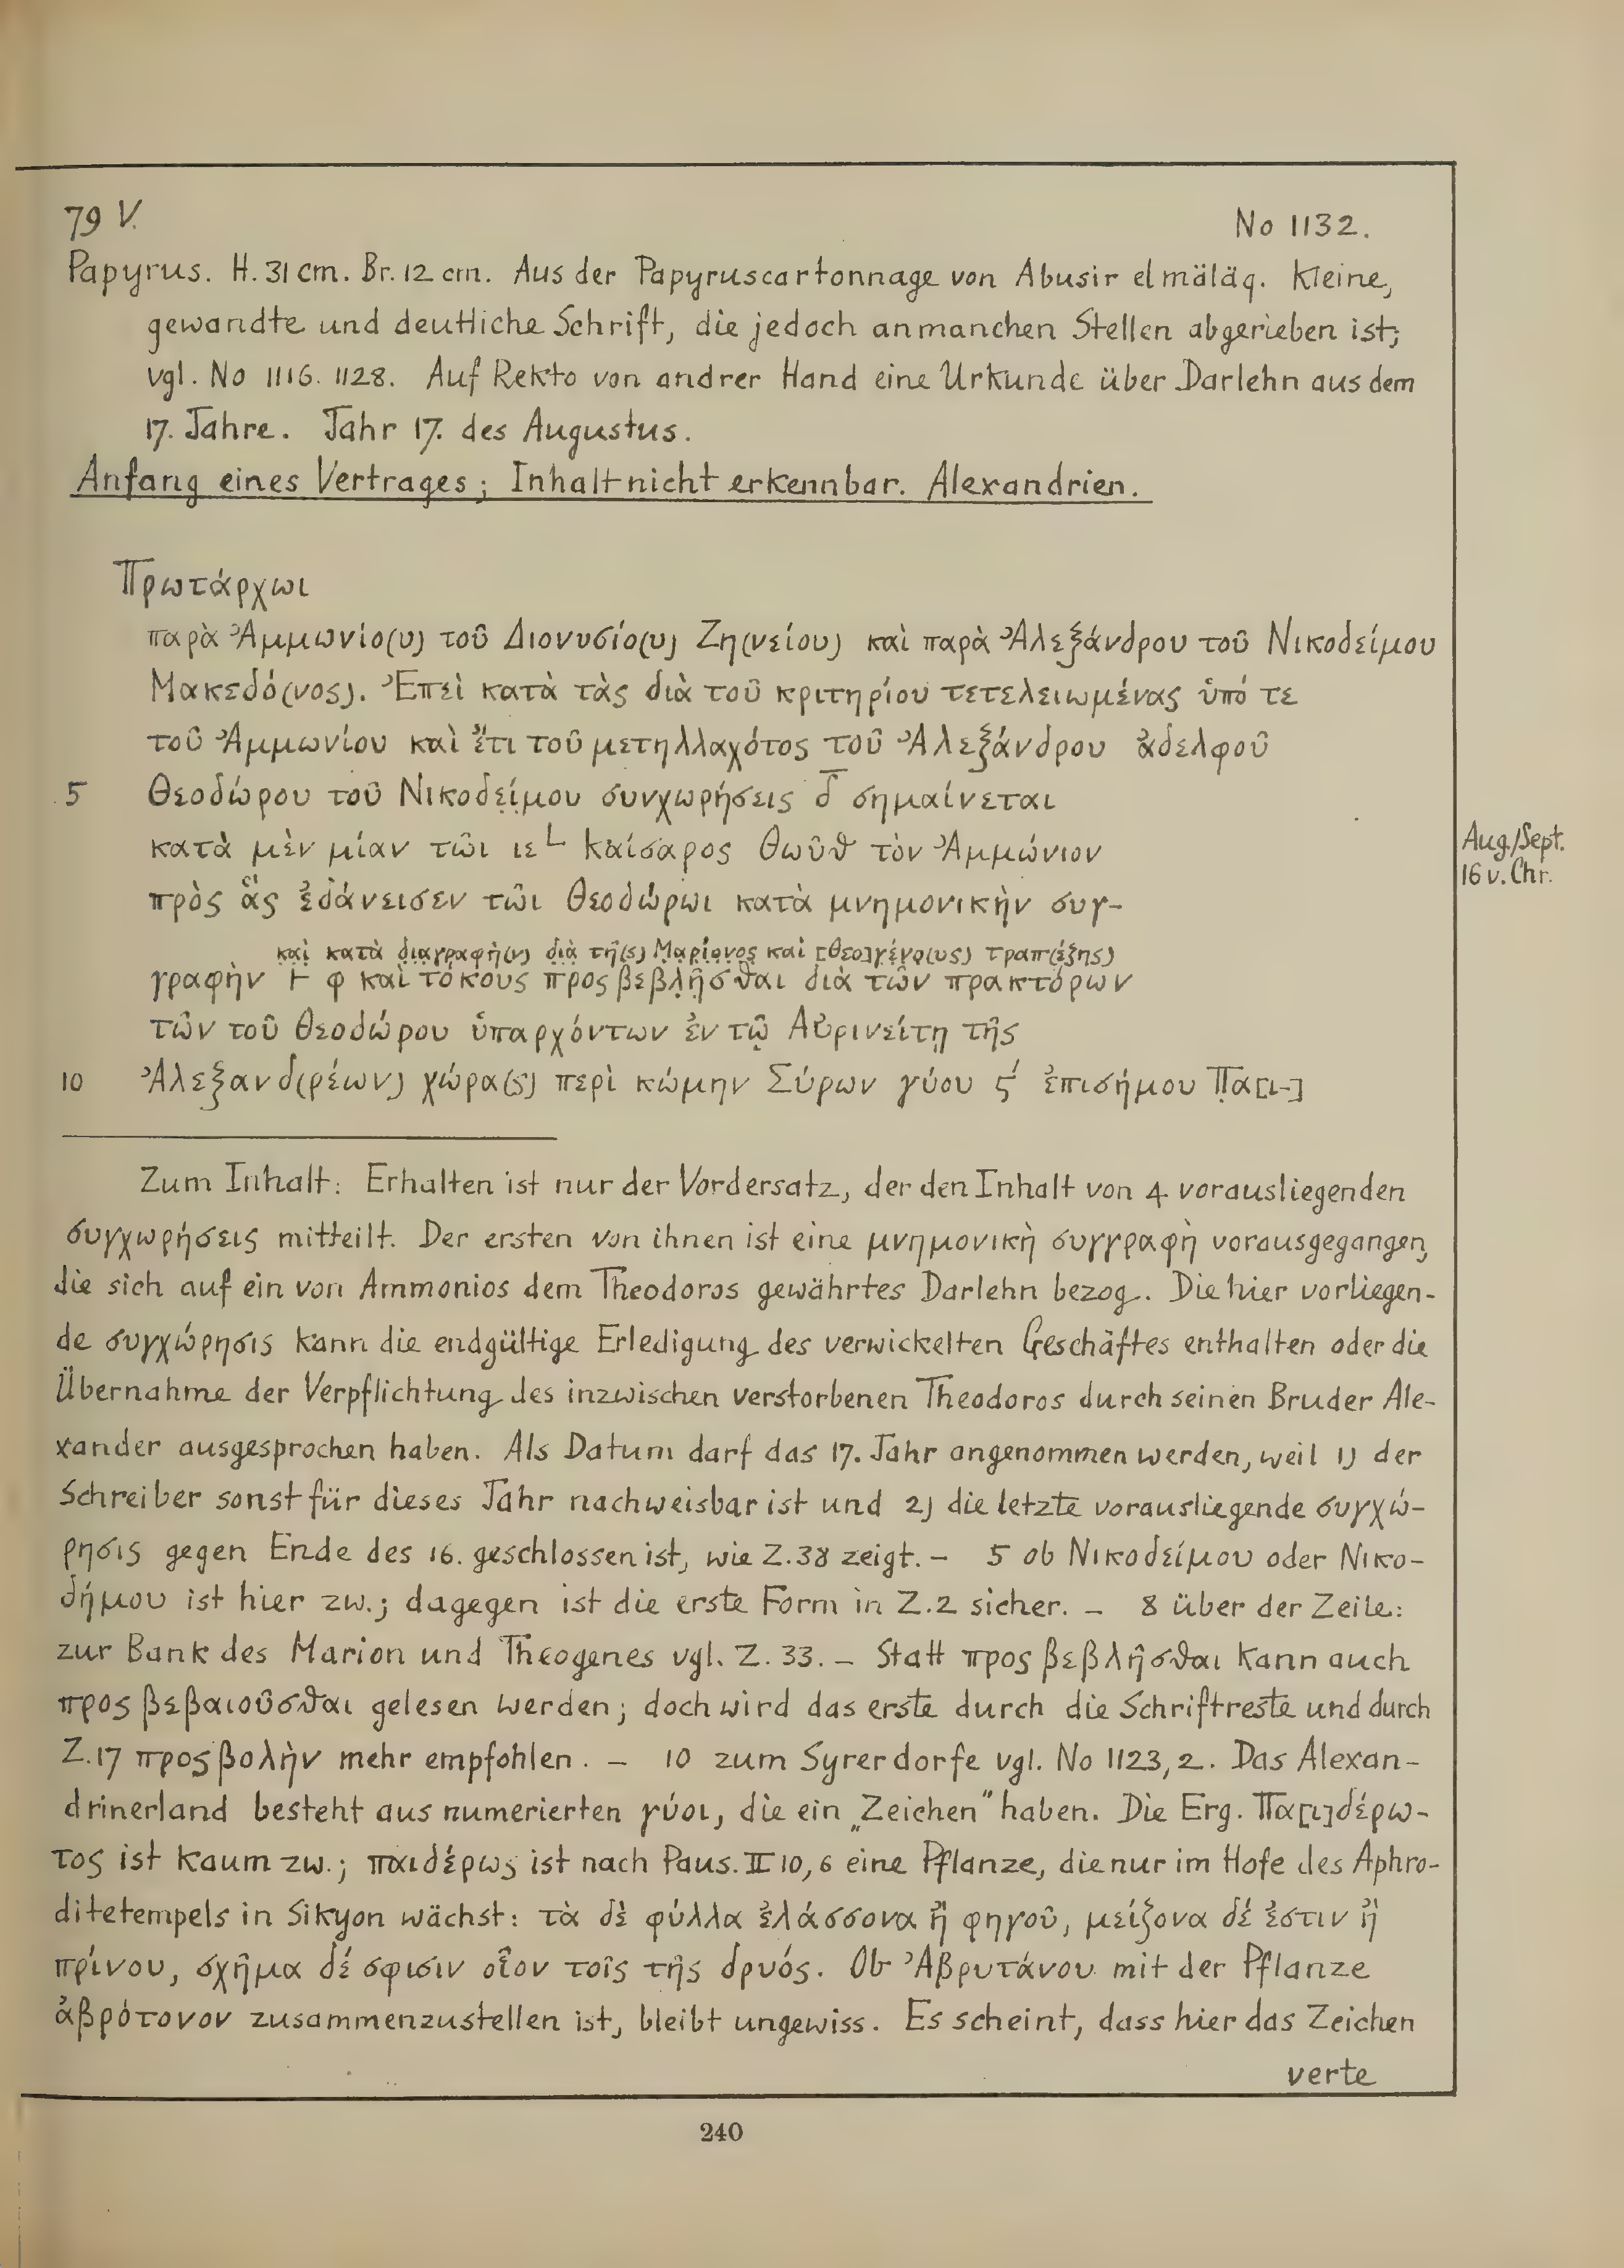 79 V.
No 1132.
Papyrus. H. 31 cm. Br. 12 cm. Aus der Papyruscartonnage von Abusir el mäläq. Kleine,
gewandte und deutliche Schrift, die jedoch an manchen Stellen abgerieben ist;
vgl. No 1116. 1128. Auf Rekto von andrer Hand eine Urkunde über Darlehn aus dem
17. Jahre. Jahr 17. des Augustus.
Anfang eines Vertrages; Inhalt nicht erkennbar. Alexandrien.
Πρωτάρχωι
παρὰ Ἀμμωνίο(υ) τοῦ Διονυσίο(υ) Ζη(νείου) καὶ παρὰ Ἀλεξάνδρου τοῦ Νικοδείμου
Μακεδό(νος). Ἐπεὶ κατὰ τὰς διὰ τοῦ κριτηρίου τετελειωμένας ὑπό τε
τοῦ Ἀμμωνίου καὶ ἔτι τοῦ μετηλλαχότος τοῦ Ἀλεξάνδρου ἀδελφοῦ
5 Θεοδώρου τοῦ Νικοδε̣ί̣μου συνχωρήσεις δ̅ σημαίνεται
κατὰ μὲν μίαν τῶι ιε L Καίσαρος Θωῦθ τὸν Ἀμμώνιον
Aug./Sept.
16 v. Chr.
πρὸς ἃς ἐδάνεισεν τῶι Θεοδώρωι κατὰ μνημονικὴν συγ-
κα̣ὶ̣ κατὰ δ̣ι̣α̣γραφὴ(ν) δ̣ι̣ὰ̣ τῆ(ς) Μ̣α̣ρί̣ο̣ν̣ο̣ς̣ καὶ [Θεο]γ̣έ̣ν̣ο̣(υς) τραπ(έζης)
γραφὴν ⊢ φ καὶ τόκους προσβεβλ̣ῆ̣σθαι διὰ τῶν πρακτόρων
τῶν τοῦ Θεοδώρου ὑπαρχόντων ἐν τῷ Αὐρινείτῃ τῆς
10 Ἀλεξανδ(ρέων) χώρα(ς) περὶ κώμην Σύρων γύου ϛ´ ἐπισήμου Π̣α[ι-]
Zum Inhalt: Erhalten ist nur der Vordersatz, der den Inhalt von 4 vorausliegenden
συγχωρήσεις mitteilt. Der ersten von ihnen ist eine μνημονικὴ συγγραφὴ vorausgegangen,
die sich auf ein von Ammonios dem Theodoros gewährtes Darlehn bezog. Die hier vorliegen-
de συγχώρησις kann die endgültige Erledigung des verwickelten Geschäftes enthalten oder die
Übernahme der Verpflichtung des inzwischen verstorbenen Theodoros durch seinen Bruder Ale-
xander ausgesprochen haben. Als Datum darf das 17. Jahr angenommen werden, weil 1) der
Schreiber sonst für dieses Jahr nachweisbar ist und 2) die letzte vorausliegende συγχώ-
ρησις gegen Ende des 16. geschlossen ist, wie Z. 38 zeigt. – 5 ob Νικοδείμου oder Νικο-
δήμου ist hier zw.; dagegen ist die erste Form in Z. 2 sicher. – 8 über der Zeile:
zur Bank des Marion und Theogenes vgl. Z. 33. – Statt προσβεβλῆσθαι kann auch
προσβεβαιοῦσθαι gelesen werden; doch wird das erste durch die Schriftreste und durch
Z. 17 προσβολὴν mehr empfohlen. – 10 zum Syrerdorfe vgl. No 1123, 2. Das Alexan-
drinerland besteht aus numerierten γύοι, die ein „Zeichen" haben. Die Erg. Πα[ι]δέρω-
τος ist kaum zw.; παιδέρως ist nach Paus. II 10, 6 eine Pflanze, die nur im Hofe des Aphro-
ditetempels in Sikyon wächst: τὰ δὲ φύλλα ἐλάσσονα ἢ φηγοῦ, μείζονα δέ ἐστιν ἢ
πρίνου, σχῆμα δέ σφισιν οἷον τοῖς τῆς δρυός. Ob Ἀβρυτάνου mit der Pflanze
ἀβρότονον zusammenzustellen ist, bleibt ungewiss. Es scheint, dass hier das Zeichen
verte
240